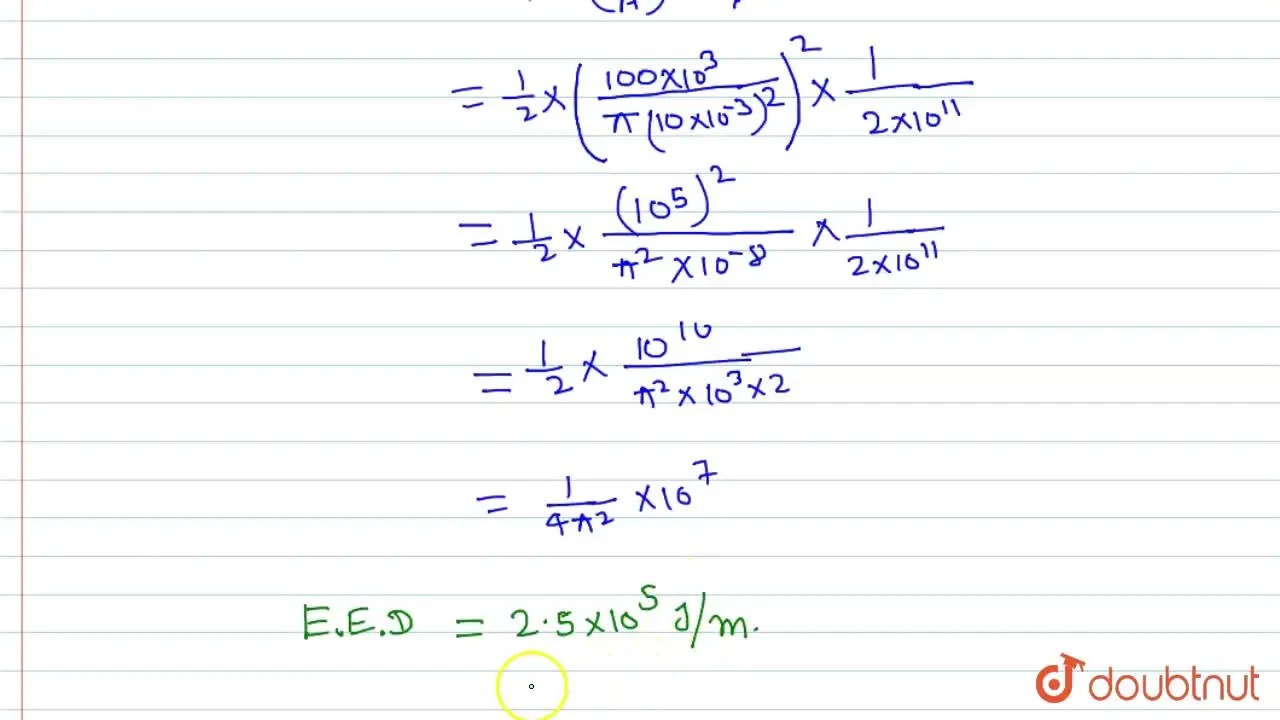 (A)
= 1/2 × (100×10³ / π(10×10⁻³)²)² × 1 / 2×10¹¹
= 1/2 × (10⁵)² / π²×10⁻⁸ × 1 / 2×10¹¹
= 1/2 × 10¹⁰ / π²×10³×2
= 1 / 4π² ×10⁷
E.E.D = 2.5×10⁵ J/m.
doubtnut